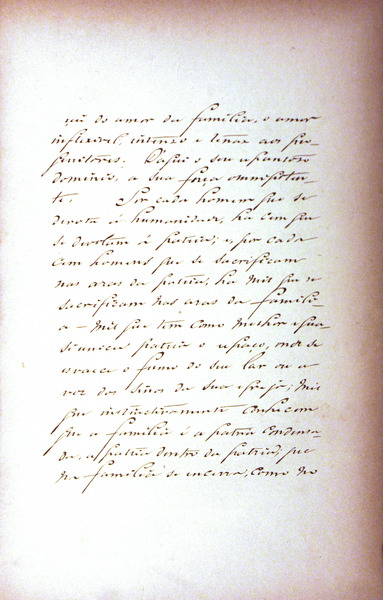 qui do amor da familia, o amor
inflexivel, intenso e tenaz aos pro-
genitores. D'aqui o seu espantoso
dominio, a sua força omnipoten-
te. Por cada homem que se
devota á humanidade, ha cem que
se devotam á patria; e, por cada
cem homens que se sacrificam
nas aras da patria, ha mil que se
sacrificam nas aras da famili-
a – mil que tem como melhor e
unica patria o espaço, onde se
esvaece o fumo do seu lar ou a
voz dos sinos da sua igreja; mil
que instinctivamente conhecem
que a familia é a patria condensa-
da, a patria dentro da patria; que
na familia se encerra, como no